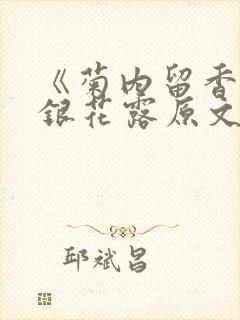 《菊内留香
银花露原文
邱斌昌